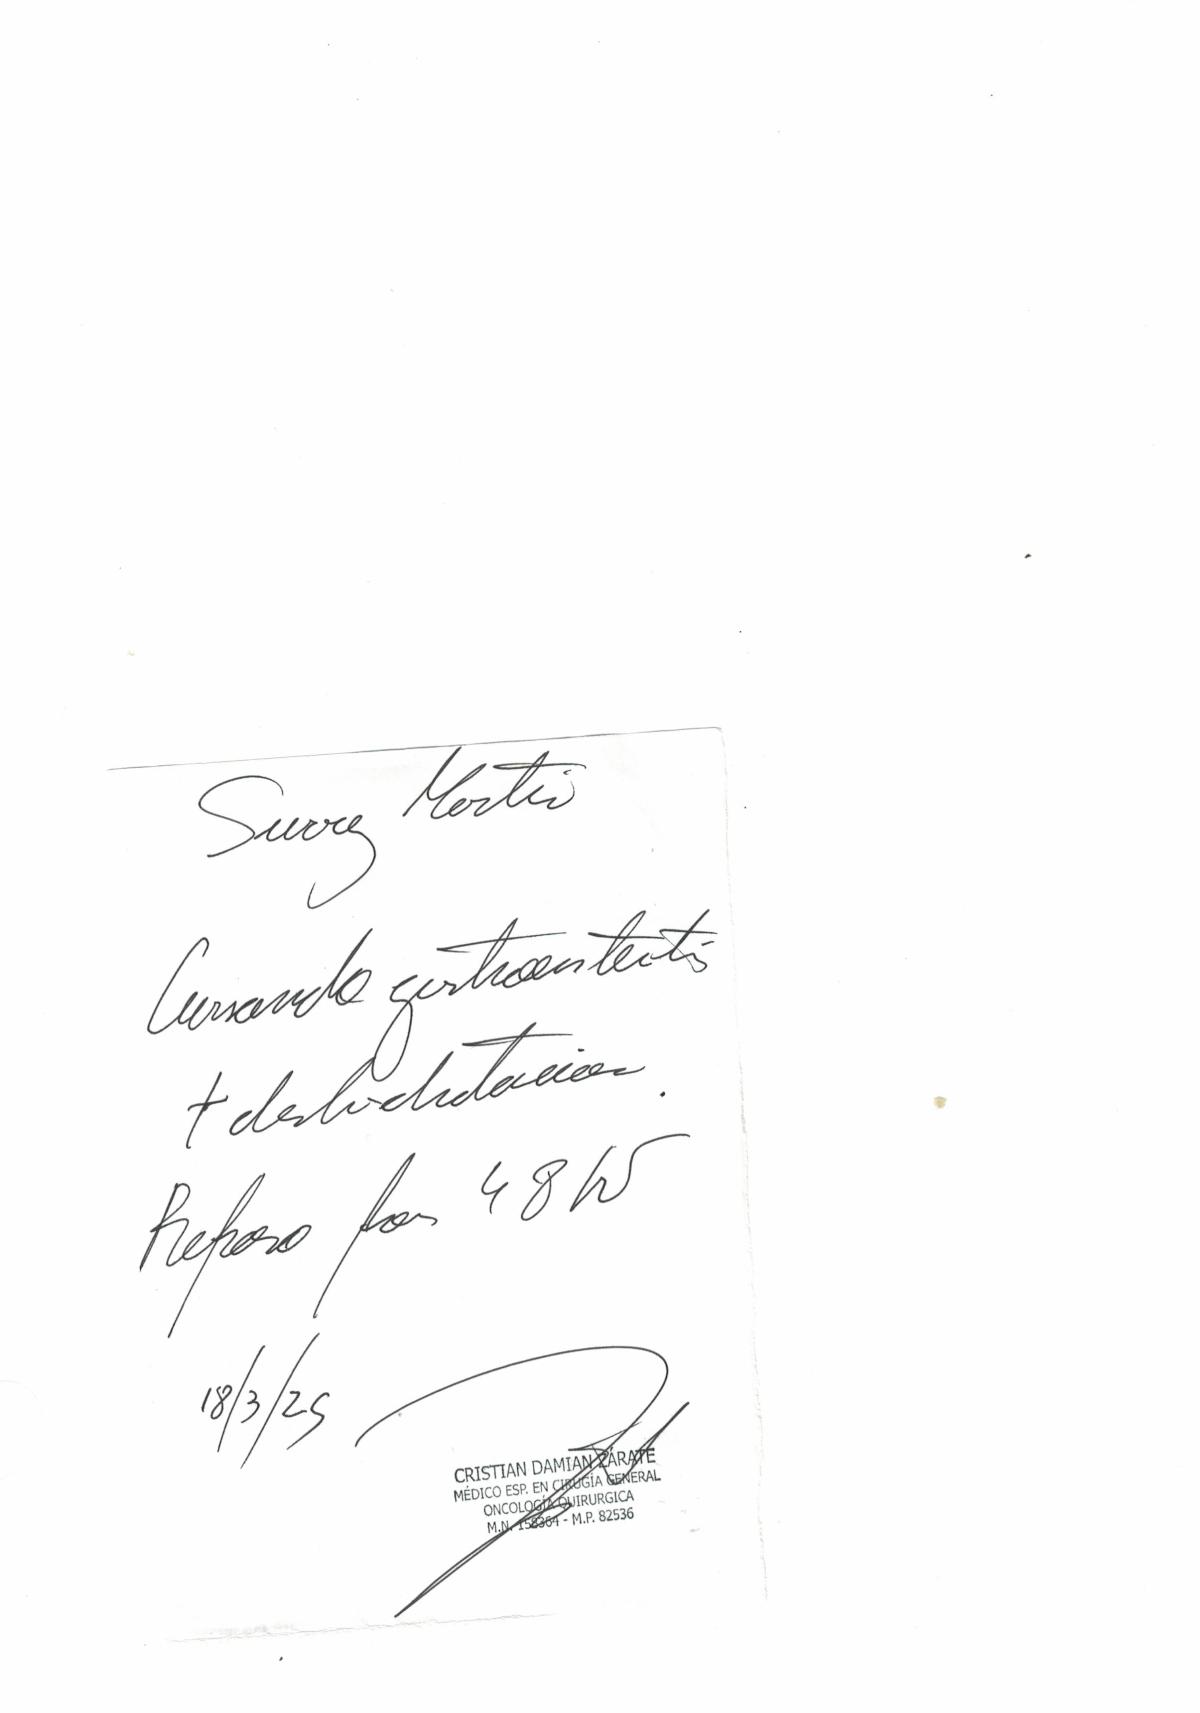 Suarez Martin
Cursando gastroenteritis
+ deshidratacion.
Reposo por 48 hs
18/3/25
CRISTIAN DAMIAN ZÁRATE
MÉDICO ESP. EN CIRUGÍA GENERAL
ONCOLOGÍA QUIRURGICA
M.N. 158364 - M.P. 82536